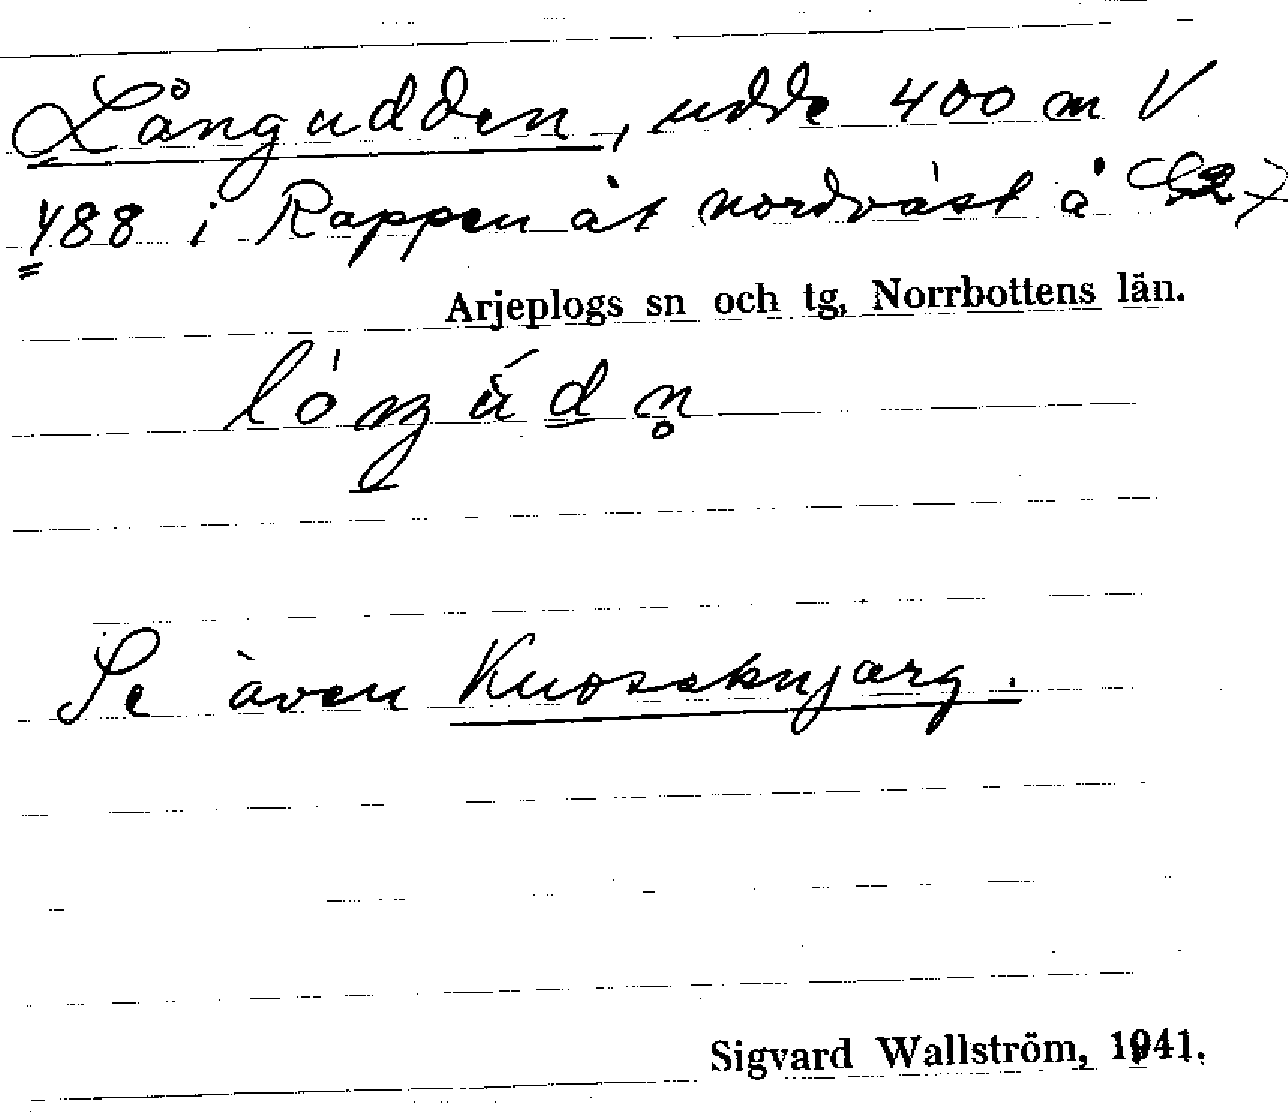 Långudden, udde 400 m V
488 i Rappen åt nordväst å
Arjeplogs sn och tg, Norrbottens län.
Se även Kuossknjarg.
Sigvard Wallström, 1941.